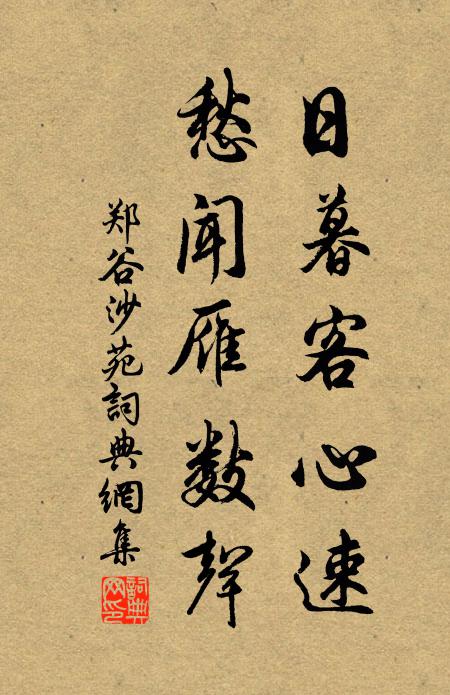 日暮客心速
愁闻雁数聲
郑谷沙苑詞典網集
詞典网印